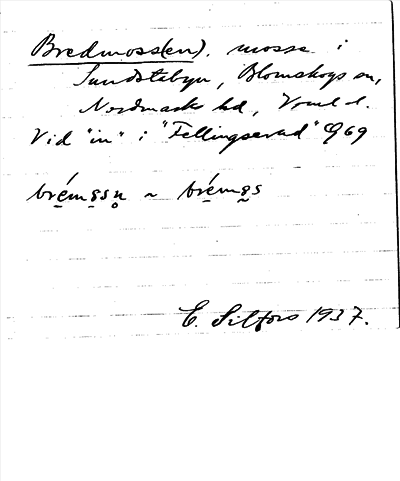 Bredmoss(en). mosse i
Sundstebyn, Blomskogs sn,
Nordmarks hd, Vrml l.
Vid "in" i "Fellingserud" 969
brémo̤sn̥ ~ brémo̤s
E. Silfors 1937.